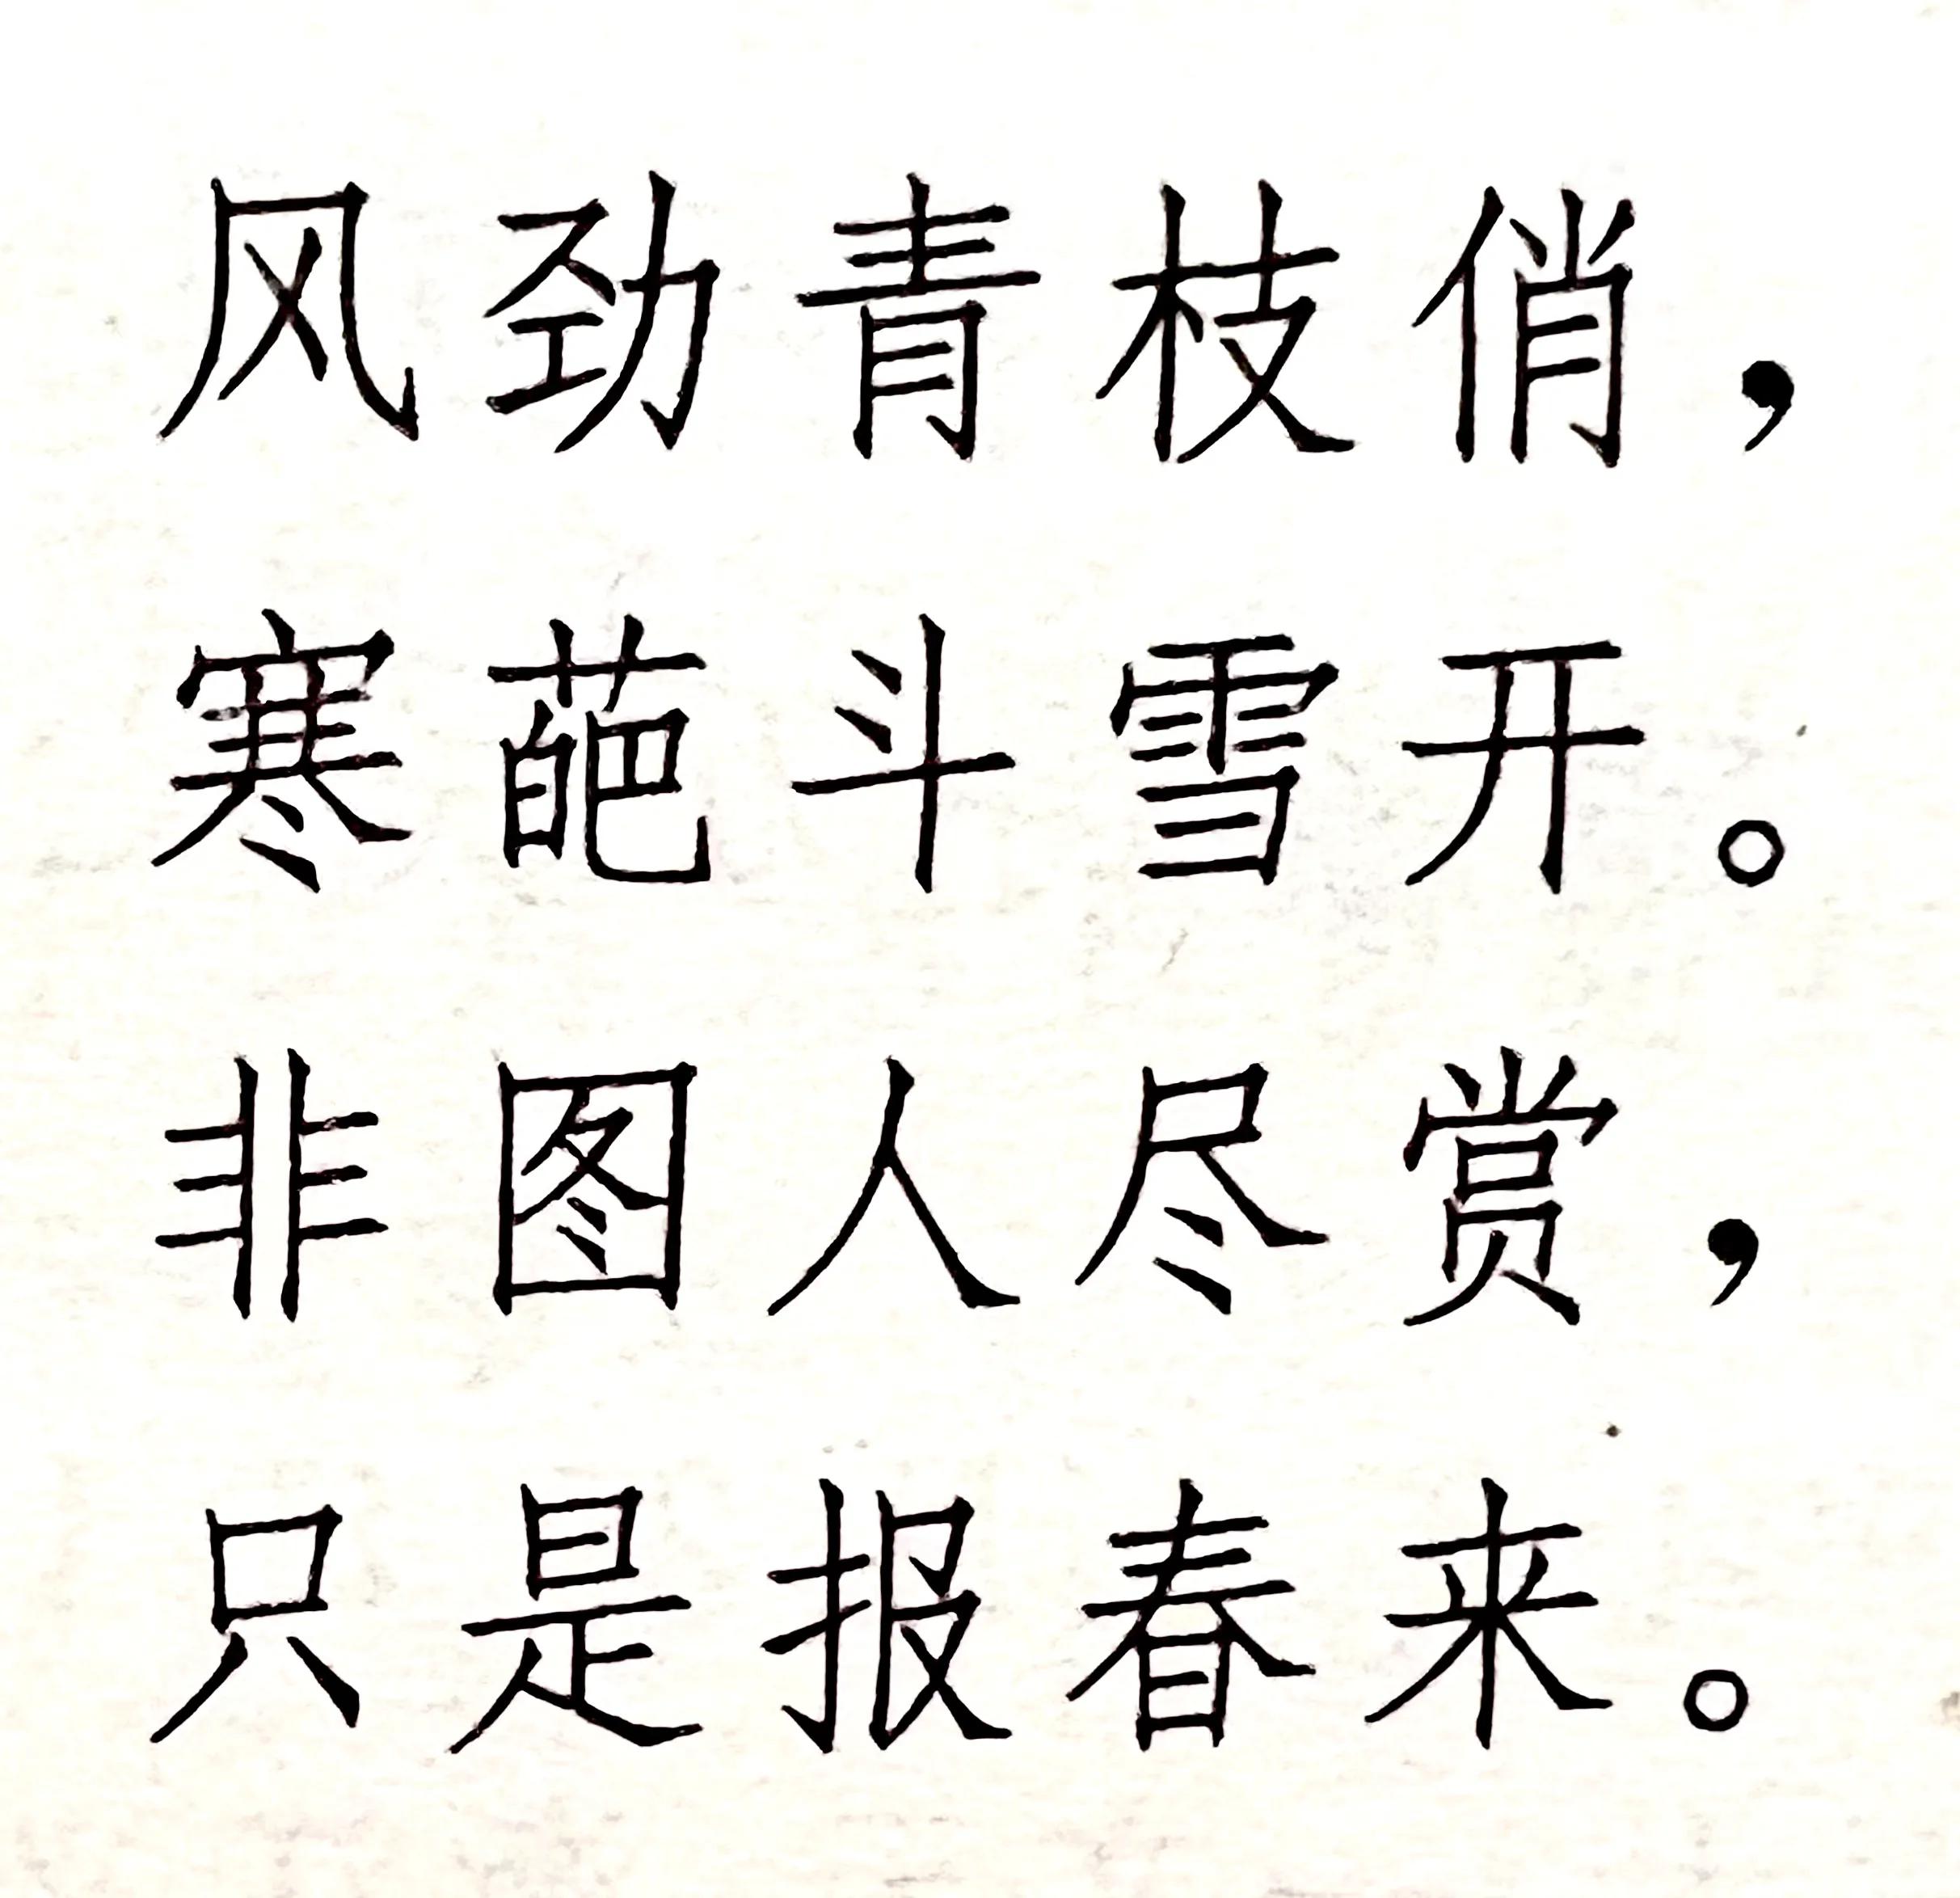 风劲青枝俏，
寒葩斗雪开。
非图人尽赏，
只是报春来。